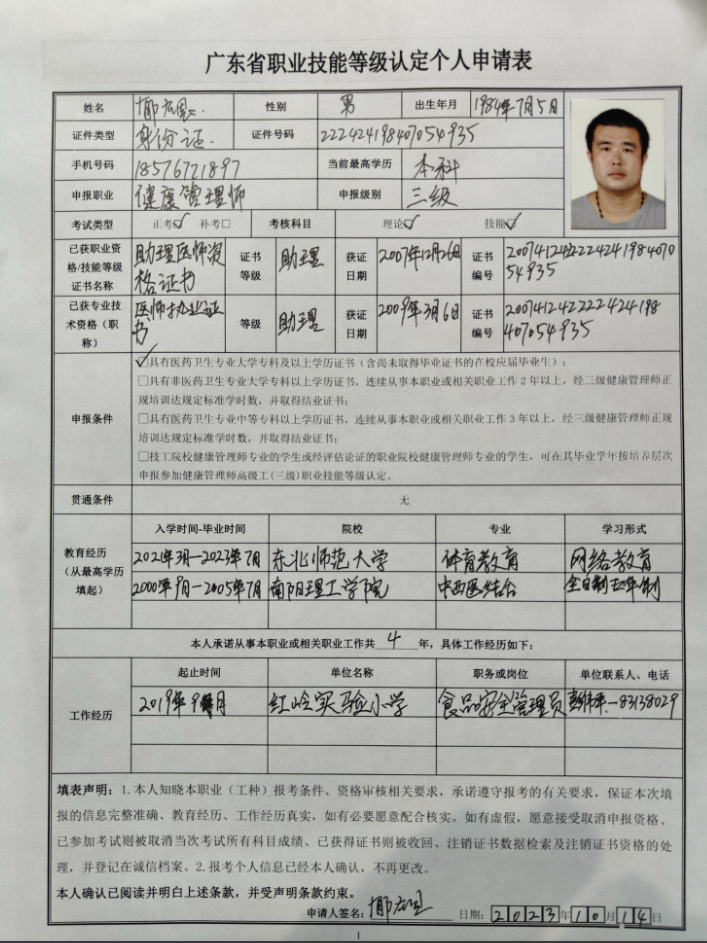 广东省职业技能等级认定个人申请表
姓名 性别 男 出生年月 1984年7月5日
证件类型 身份证 证件号码 222424198407054935
手机号码 18576721897 当前最高学历 本科
申报职业 健康管理师 申报级别 三级
考试类型 正考☑ 补考□ 考核科目 理论☑ 技能☑
已获职业资格/技能等级证书名称 助理医师资格证书 证书等级 助理 获证日期 2007年12月26日 证书编号
已获专业技术资格(职称) 医师执业证书 等级 助理 获证日期 2009年3月6日 证书编号 200741242222424198407054935
申报条件
☑具有医药卫生专业大学专科及以上学历证书(含尚未取得毕业证书的在校应届毕业生);
□具有非医药卫生专业大学专科以上学历证书,连续从事本职业或相关职业工作2年以上,经三级健康管理师正
规培训达规定标准学时数,并取得结业证书;
□具有医药卫生专业中等专科以上学历证书,连续从事本职业或相关职业工作3年以上,经三级健康管理师正规
培训达规定标准学时数,并取得结业证书;
□技工院校健康管理师专业的学生或经评估论证的职业院校健康管理师专业的学生,可在其毕业学年按培养层次
申报参加健康管理师高级工(三级)职业技能等级认定。
贯通条件 无
教育经历(从最高学历填起)
入学时间-毕业时间 院校 专业 学习形式
2021年3月-2023年7月 东北师范大学 体育教育 网络教育
2000年9月-2005年7月 南阳理工学院 中西医结合 全日制五年制
本人承诺从事本职业或相关职业工作共 4 年,具体工作经历如下:
工作经历
起止时间 单位名称 职务或岗位 单位联系人、电话
2019年9月 红岭实验小学 食品安全管理员 -83138029
填表声明:1.本人知晓本职业(工种)报考条件、资格审核相关要求,承诺遵守报考的有关要求,保证本次填
报的信息完整准确、教育经历、工作经历真实,如有必要愿意配合核实。如有虚假,愿意接受取消申报资格、
已参加考试则被取消当次考试所有科目成绩、已获得证书则被收回、注销证书数据检索及注销证书资格的处
理,并登记在诚信档案。2.报考个人信息已经本人确认,不再更改。
本人确认已阅读并明白上述条款,并受声明条款约束。
申请人签名: 日期:2023年10月14日
1